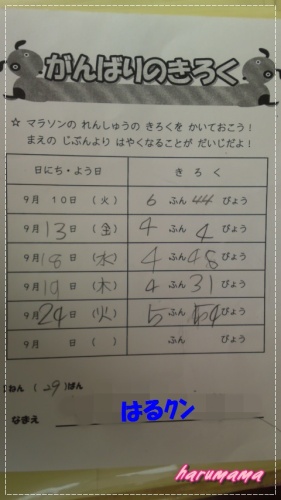 がんばりのきろく
☆ マラソンの れんしゅうの きろくを かいておこう!
まえの じぶんより はやくなることが だいじだよ!
日にち・よう日 きろく
9月 10日 (火) 6 ふん 44 びょう
9月 13日 (金) 4 ふん 4 びょう
9月 18日 (水) 4 ふん 48 びょう
9月 19日 (木) 4 ふん 31 びょう
9月 24日 (火) 5 ふん 54 びょう
9月 日 ( ) ふん びょう
ねん (29)ばん
なまえ はるクン
harumama